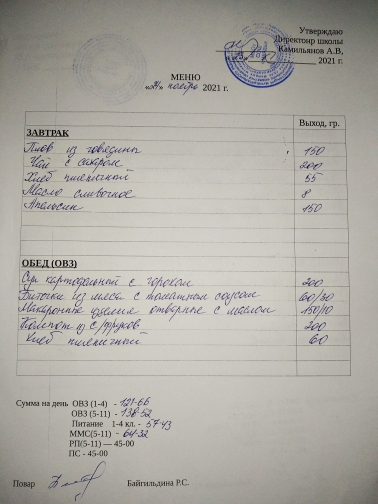 Утверждаю
Директоир школы
Камильянов А.В,
2021 г.
МЕНЮ
«24» ноября 2021 г.
Выход, гр.
ЗАВТРАК
Плов из говядины 150
Чай с сахаром 200
Хлеб пшеничный 55
Масло сливочное 8
Апельсин 150
ОБЕД (ОВЗ)
Суп картофельный с горохом 200
Биточки из мяса с томатным соусом 60/30
Макаронные изделия отварные с маслом 150/10
Компот из с/фруков 200
Хлеб пшеничный 60
Сумма на день ОВЗ (1-4) - 121-66
ОВЗ (5-11) - 138-52
Питание 1-4 кл. - 57-43
ММС(5-11) - 64-32
РП(5-11) — 45-00
ПС - 45-00
Повар Байгильдина Р.С.